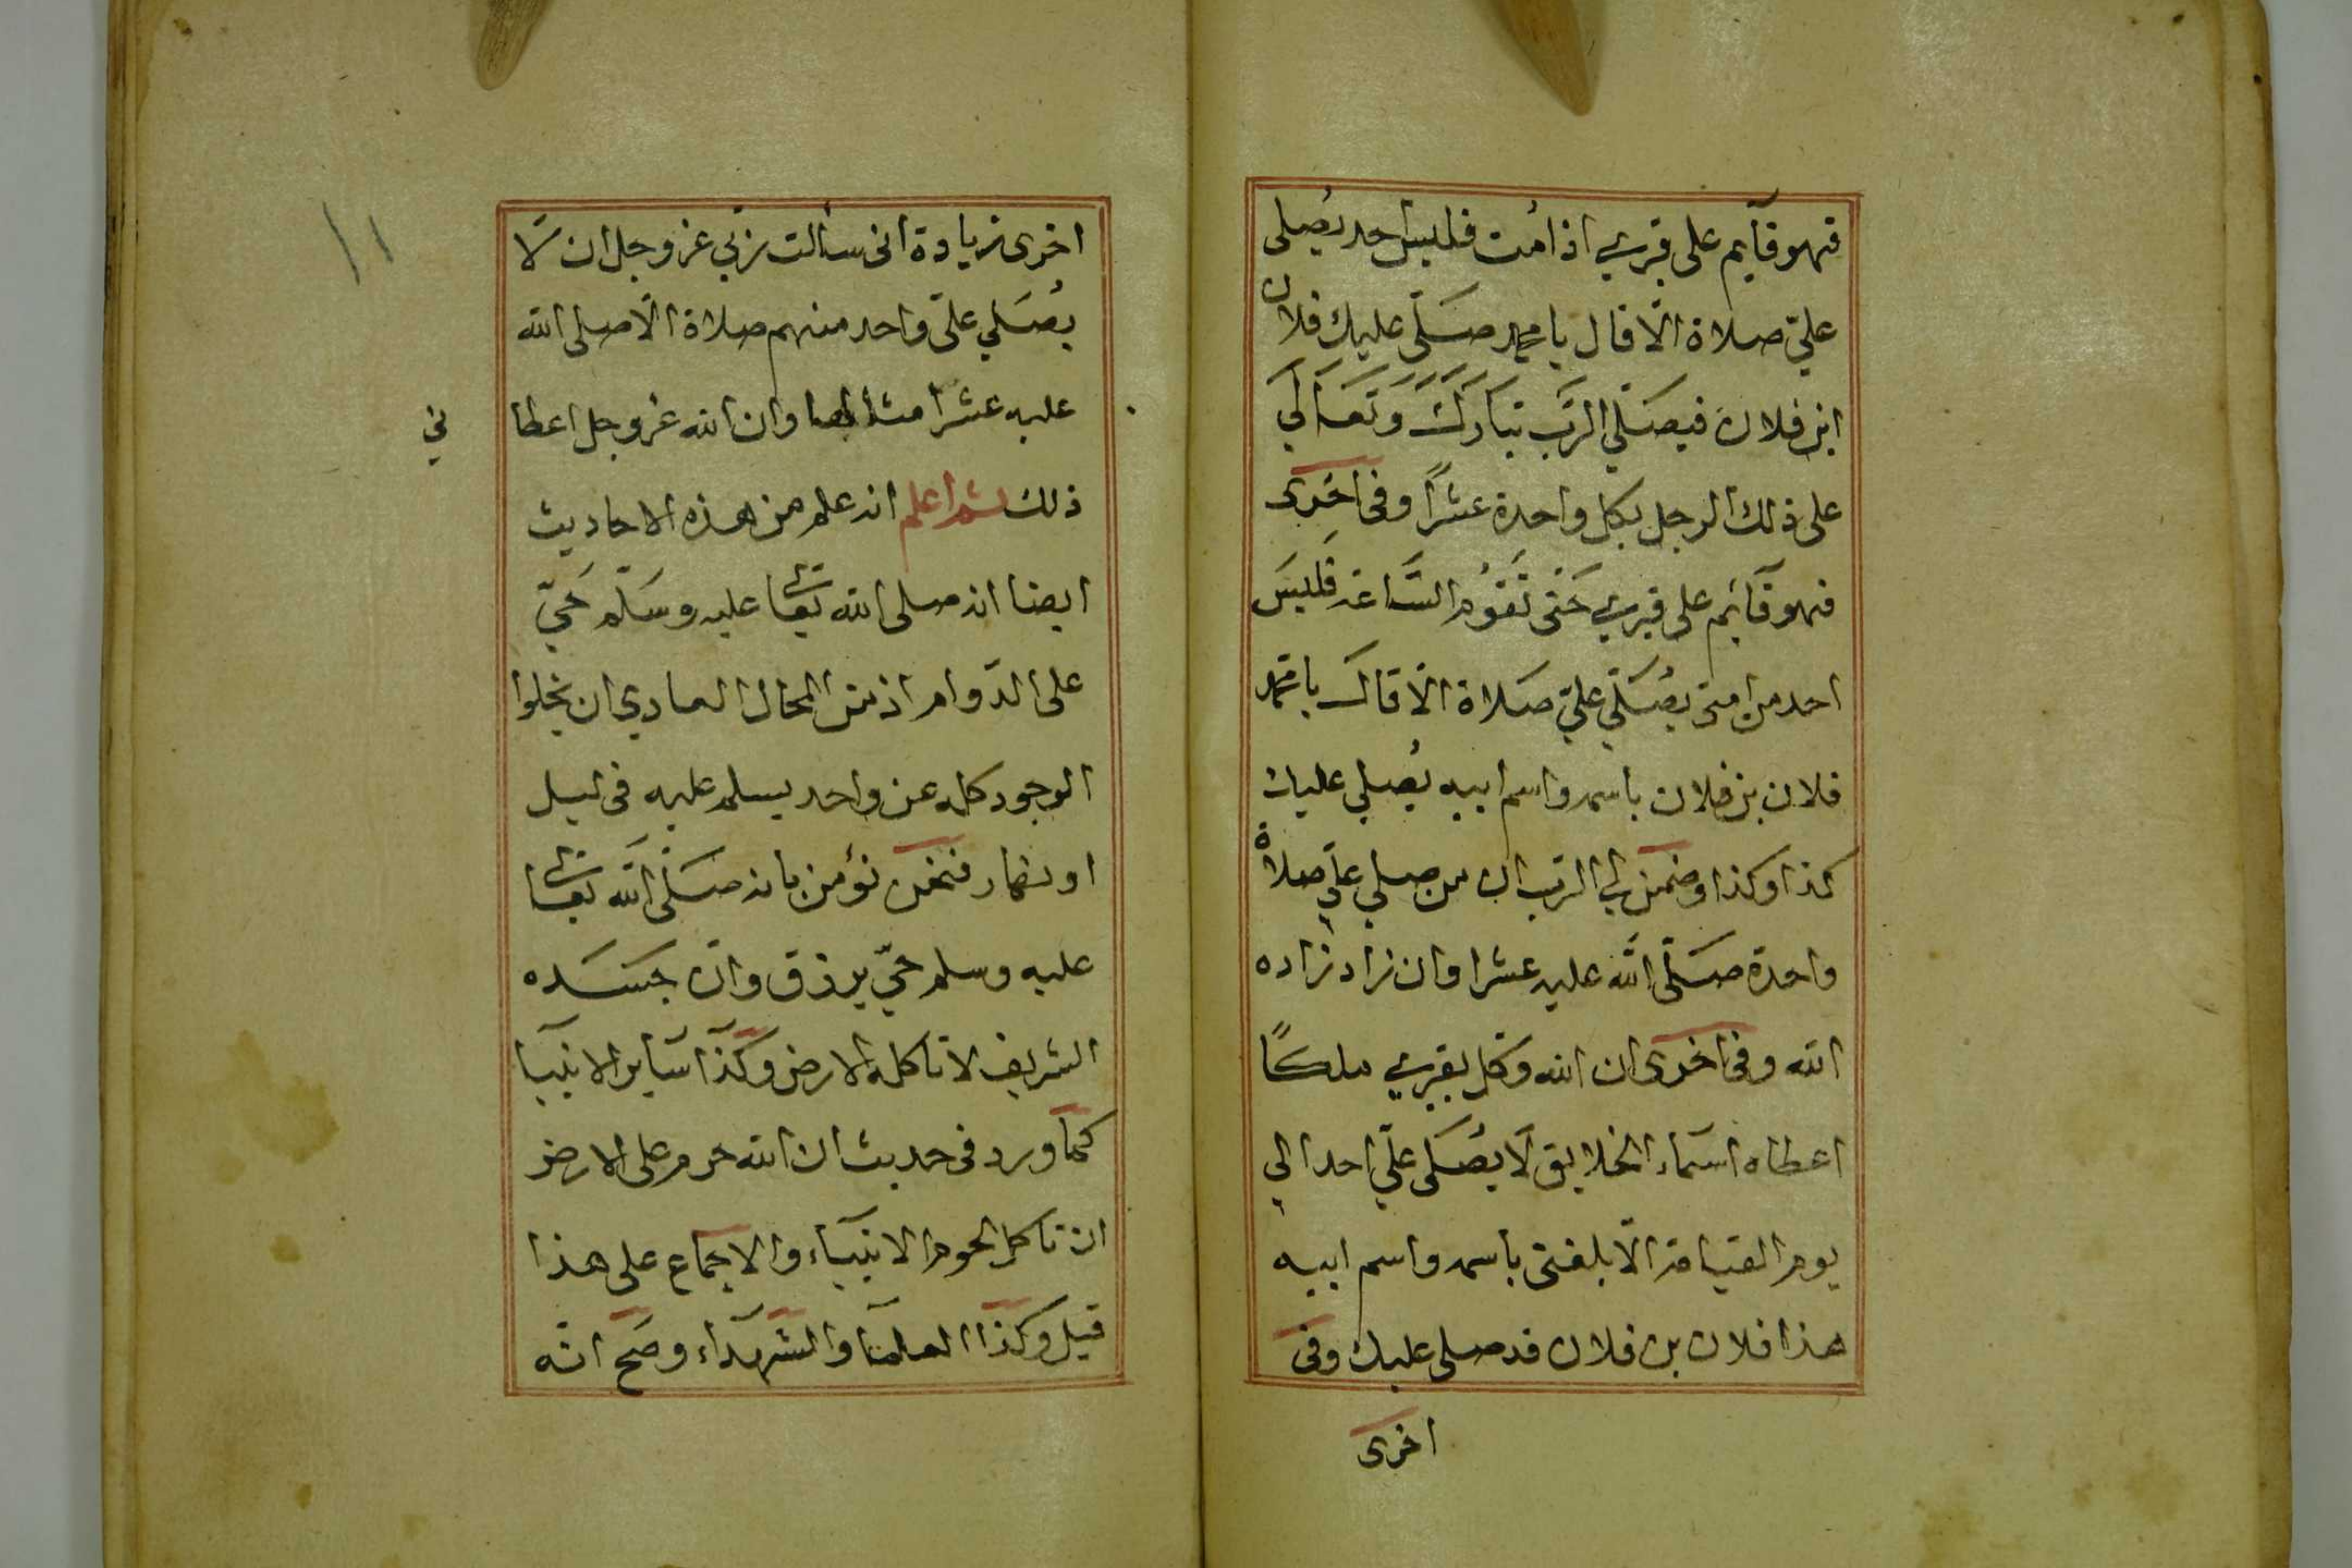 فهو قآيم على قبري اذا مُت فليس احد يُصلى
عليّ صلاة الّا قال يا محمد صَلّى عليك فلان
ابن فلان فيصَلّي الرّب تبَارَكَ وَتَعَالَى
على ذلك الرجل بكل واحدة عشرًا وفى اخرى
فهو قآئم على قبري حَتى تَقوُم السَّاعة فَليسَ
احد من امتى يُصَلّي عليّ صَلاة الّا قالَ يا محمد
فلان بن فلان باسمه واسم ابيه يُصلي عليك
كذا وكذا وضمن لي الرّب ان من صلي عليّ صلاة
واحدة صَلّى الله عليه عشرا وان زاد زاده
الله وفى اخرى ان الله وكل بقبري ملكًا
اعطاه اسمَاء الخلايق لَا يُصَلى عليّ احد الي
يوم القيامة الّا بلغنى باسمه واسم ابيه
هذا فلان بن فلان قد صلى عليك وفى
اخرى
١١
اخرى زيادة انى سألت ربّي عز وجل ان لَا
يُصَلي عليّ واحد منهم صلاة الّا صلى الله
عليه عشرًا مثالها وان الله عز وجل اعطا
ني
ذلك ثم اعلم انه علم من هذه الاحاديث
ايضا انه صلى الله تعالى عليه وسَلّم حَيّ
على الدّوام اذ من المحال العادي ان يخلوا
الوجود كله عن واحد يسلم عليه فى ليل
او نهار فنحن نؤمن بانه صَلّى الله تعالى
عليه وسلم حيّ يرزق وانّ جسَده
الشريف لا تاكله الارض وكذا سَاير الانبيا
كما ورد فى حديث ان الله حرم على الارض
ان تاكل لحوم الانبيَاء والاجماع على هذا
قيل وكذا العلمآ والشهدَاء وصَح انّه